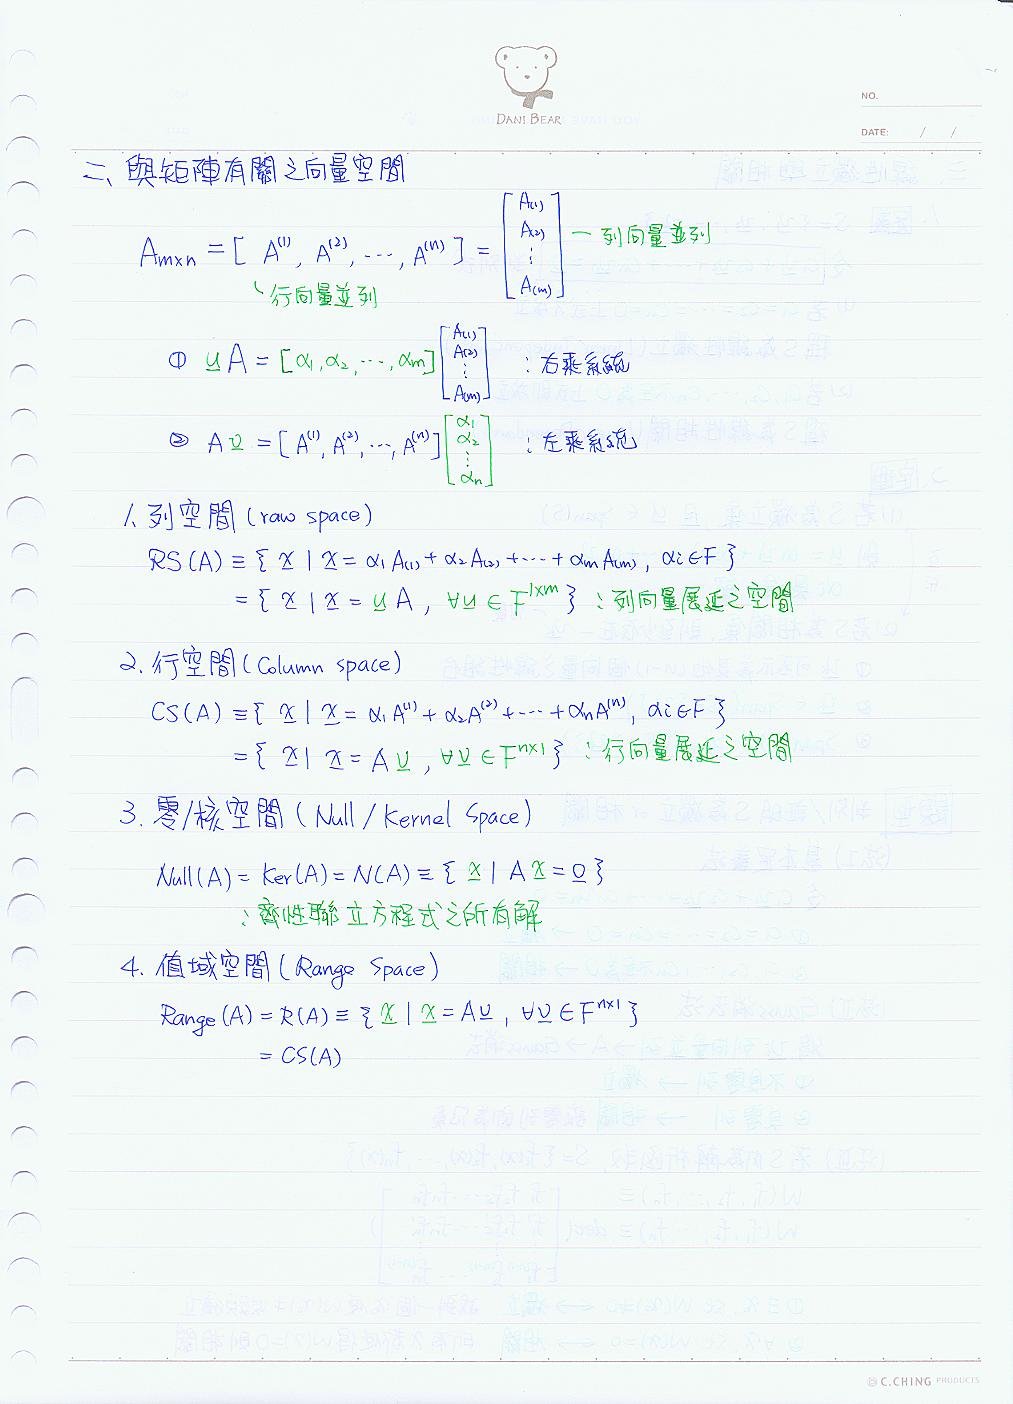 DANI BEAR
NO.
DATE: / /
二、與矩陣有關之向量空間
Amxn = [ A⁽¹⁾, A⁽²⁾, ..., A⁽ⁿ⁾ ] = [ A₍₁₎ A₍₂₎ ⋮ A₍ₘ₎ ] — 列向量並列
行向量並列
① u A = [α₁, α₂, ..., αm] [ A₍₁₎ A₍₂₎ ⋮ A₍ₘ₎ ] : 右乘系統
② A υ = [ A⁽¹⁾, A⁽²⁾, ..., A⁽ⁿ⁾ ] [ α₁ α₂ ⋮ αn ] : 左乘系統
1. 列空間 (raw space)
RS(A) ≡ { x | x = α₁A₍₁₎ + α₂A₍₂₎ + ... + αmA₍ₘ₎, αi ∈ F }
= { x | x = u A, ∀u ∈ F¹ˣᵐ } : 列向量展延之空間
2. 行空間 (Column space)
CS(A) ≡ { x | x = α₁A⁽¹⁾ + α₂A⁽²⁾ + ... + αnA⁽ⁿ⁾, αi ∈ F }
= { x | x = A υ, ∀υ ∈ Fⁿˣ¹ } : 行向量展延之空間
3. 零/核空間 (Null / Kernel Space)
Null(A) = Ker(A) = N(A) ≡ { x | A x = 0 }
: 齊性聯立方程式之所有解
4. 值域空間 (Range Space)
Range(A) = R(A) ≡ { x | x = Aυ, ∀υ ∈ Fⁿˣ¹ }
= CS(A)
C.CHING PRODUCTS